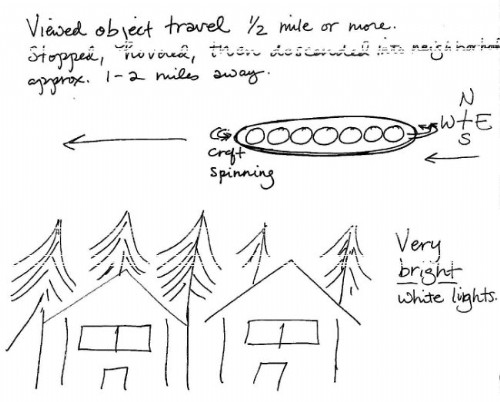 Viewed object travel 1/2 mile or more.
Stopped, hovered, then descended into neighborhood
approx. 1-2 miles away.
N
W E
S
Craft
Spinning
Very
bright
white lights.